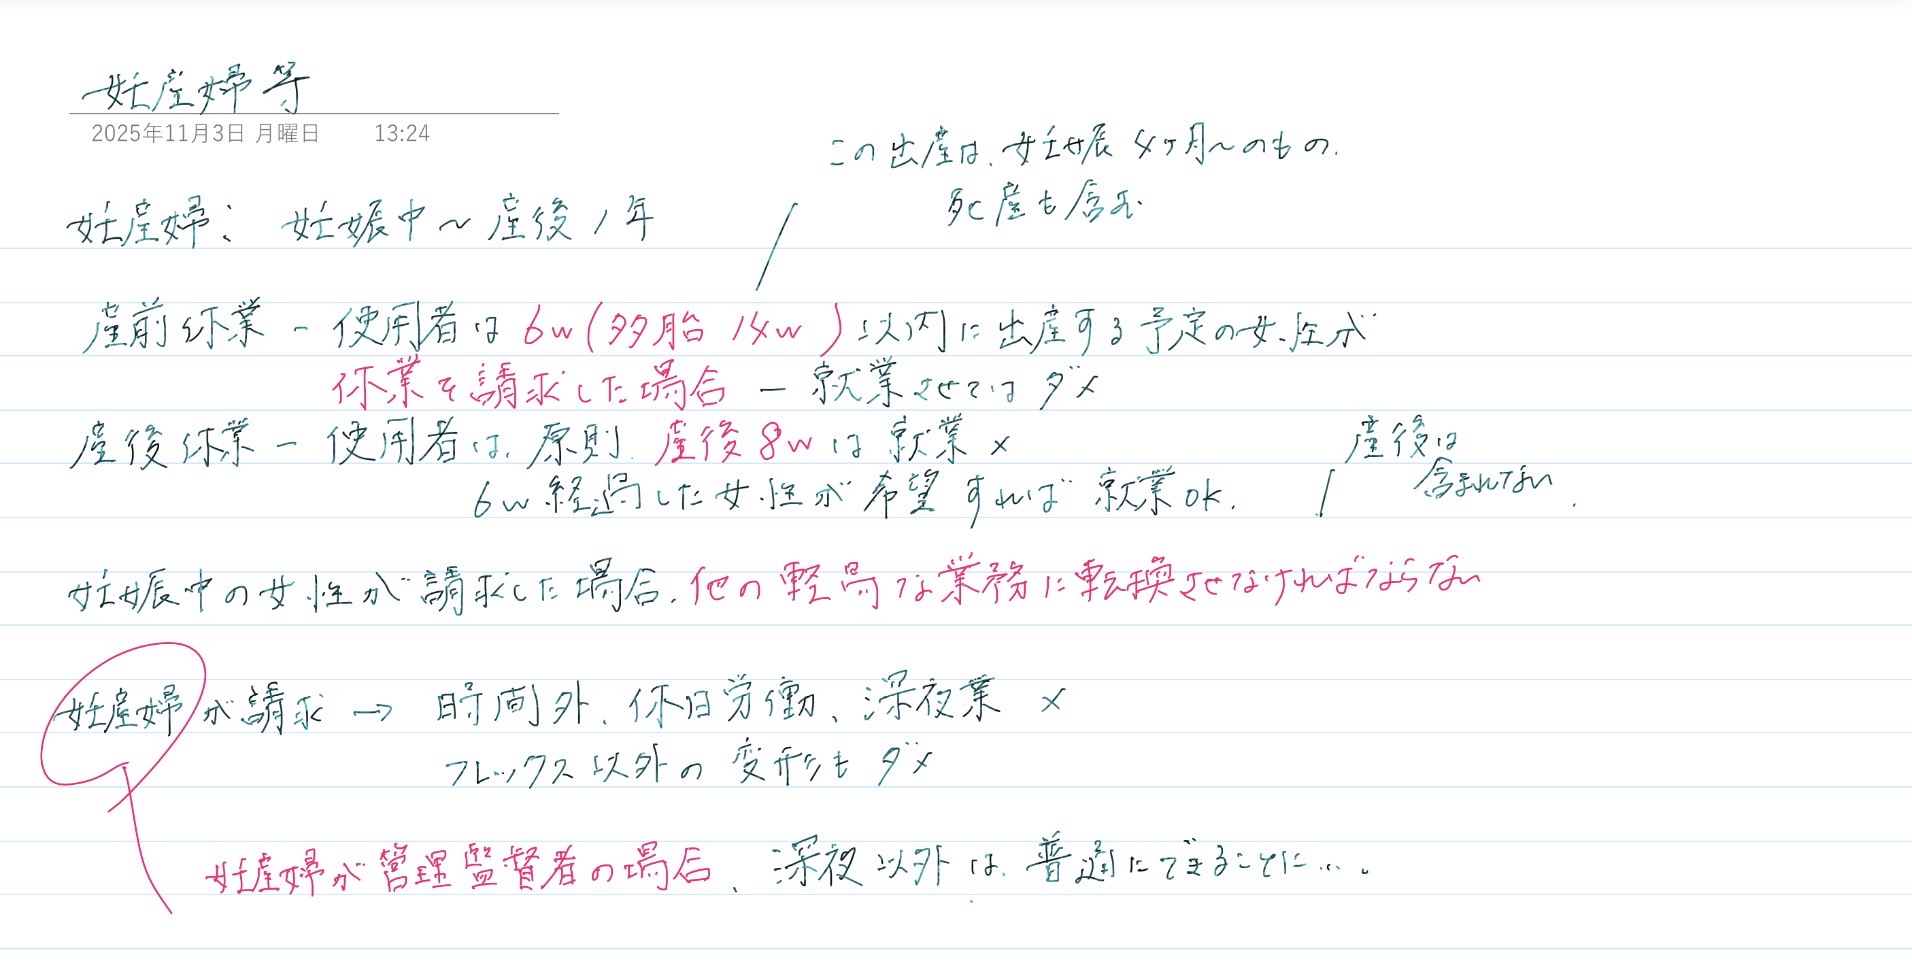 妊産婦等
2025年11月3日 月曜日 13:24
この出産は、妊娠4ヶ月~のもの.
死産も含む
妊産婦: 妊娠中~産後1年
産前休業 - 使用者は6w(多胎14w)以内に出産する予定の女性が
休業を請求した場合 - 就業させてはダメ
産後休業 - 使用者は、原則、産後8wは就業×
6w経過した女性が希望すれば就業OK.
産後は
含まれてない.
妊娠中の女性が請求した場合、他の軽易な業務に転換させなければならない
妊産婦が請求 → 時間外、休日労働、深夜業 ×
フレックス以外の変形もダメ
妊産婦が管理監督者の場合、深夜以外は、普通にできることに…。